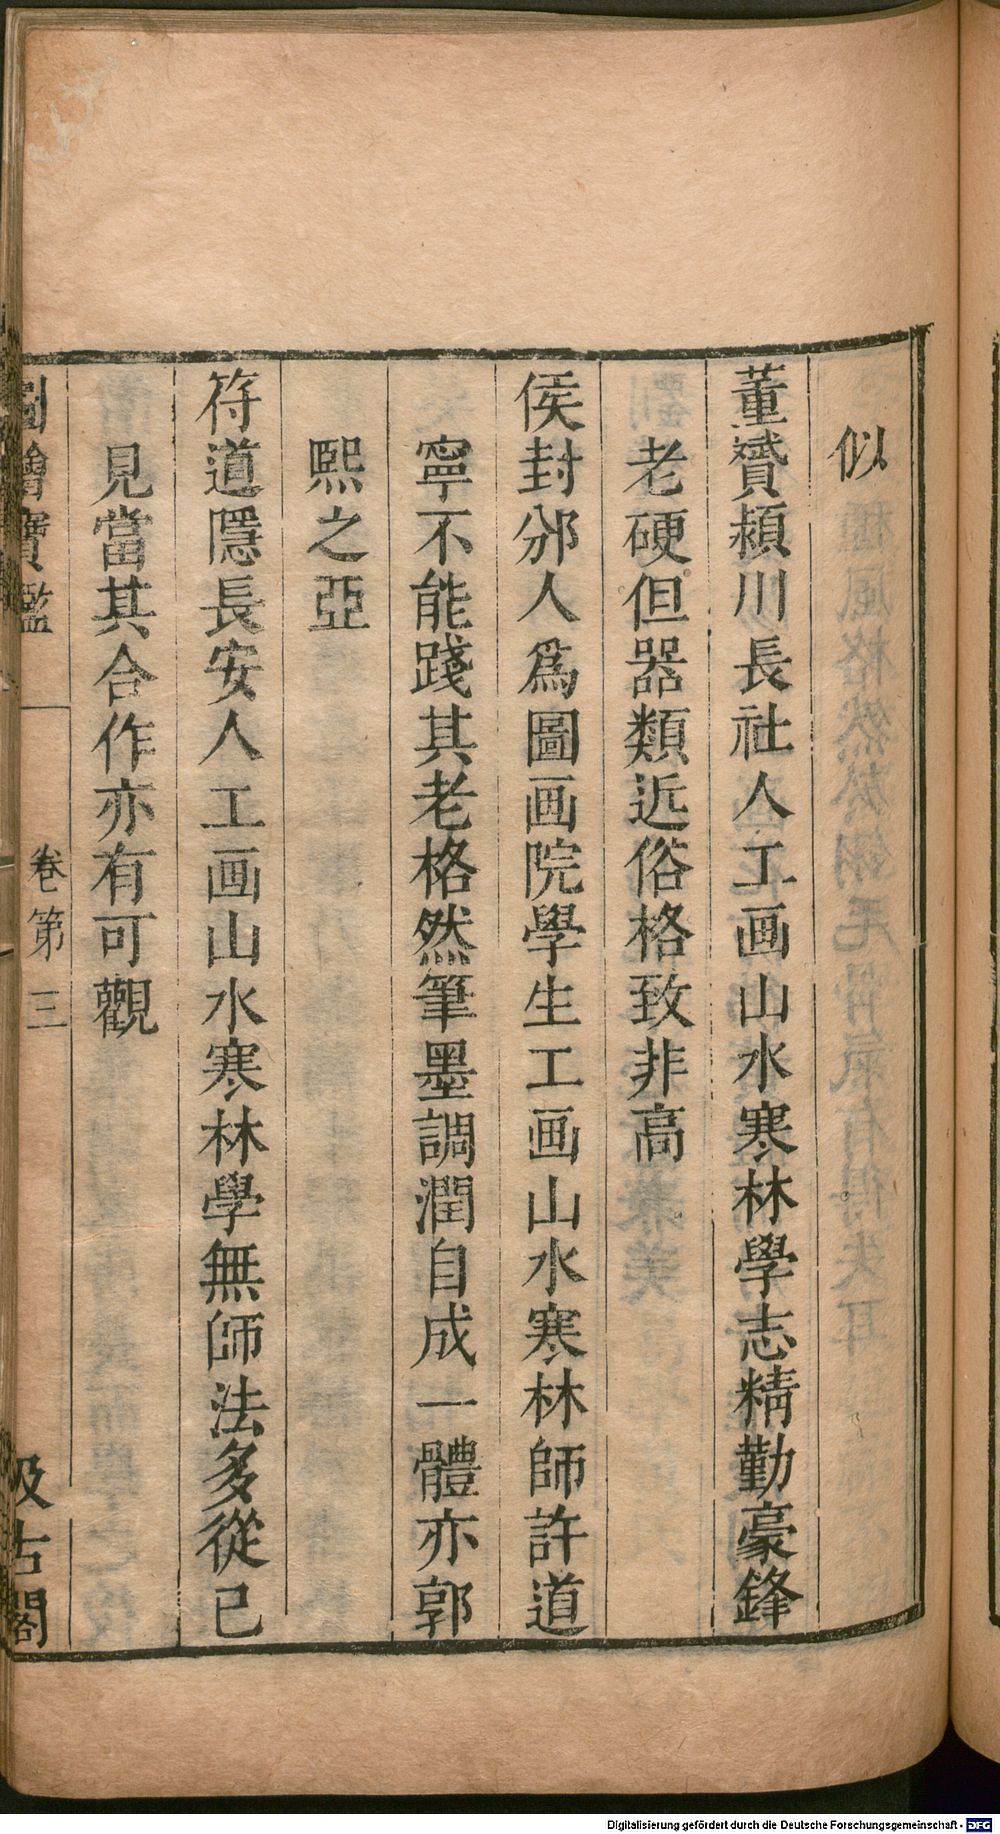 似
董贇潁川長社人工画山水寒林學志精勤豪鋒
老硬但器類近俗格致非高
侯封邠人爲圖画院學生工画山水寒林師許道
寧不能踐其老格然筆墨調潤自成一體亦郭
熙之亞
符道隱長安人工画山水寒林學無師法多從已
見當其合作亦有可觀
圖繪寶鑑 卷第三 汲古閣
Digitalisierung gefördert durch die Deutsche Forschungsgemeinschaft - DFG